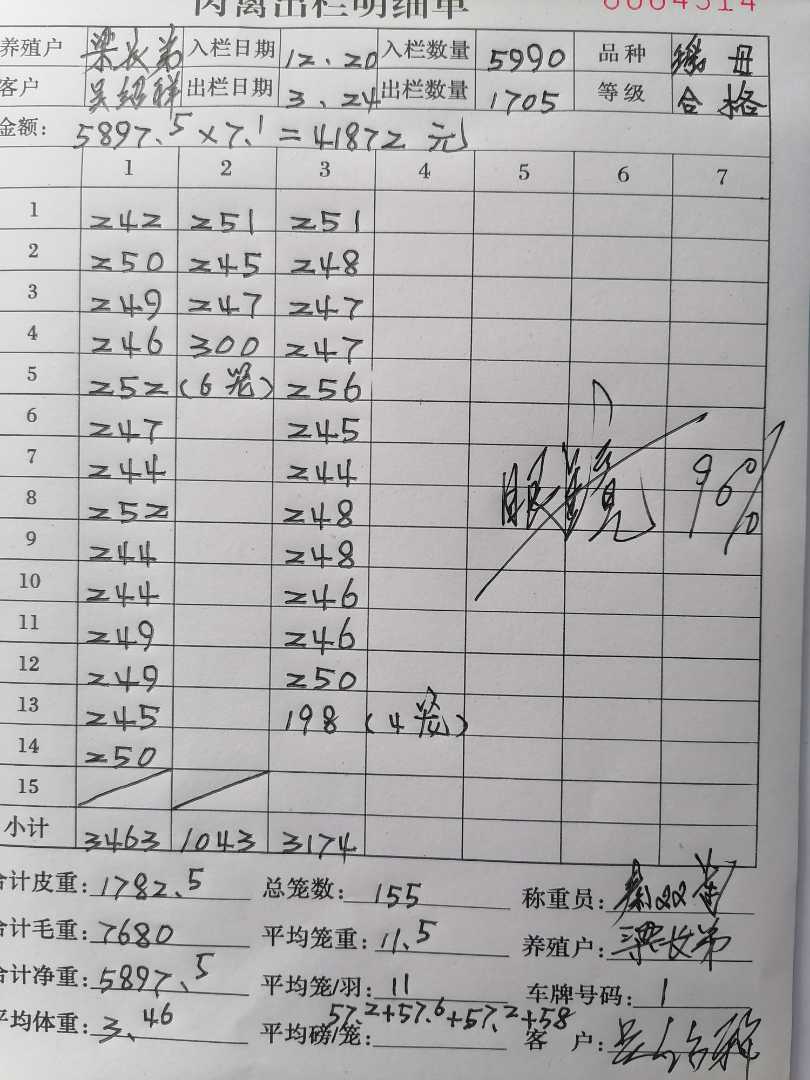 肉禽出栏明细单 0004514
养殖户 梁长弟 入栏日期 12.20 入栏数量 5990 品种 母
客户 吴绍祥 出栏日期 3.24 出栏数量 1705 等级 合格
金额: 5897.5×7.1=41872元
1 2 3 4 5 6 7
1 242 251 251
2 250 245 248
3 249 247 247
4 246 300 247
5 252 (6笼) 256
6 247 245
7 244 244
8 252 248 96%
9 244 248
10 244 246
11 249 246
12 249 250
13 245 198 (4笼)
14 250
15
小计 3463 1043 3174
合计皮重: 1782.5 总笼数: 155 称重员:
合计毛重: 7680 平均笼重: 11.5 养殖户: 梁长弟
合计净重: 5897.5 平均笼/羽: 11 车牌号码: 1
平均体重: 3.46 平均磅/笼: 57.2+57.6+57.2+58 客 户: